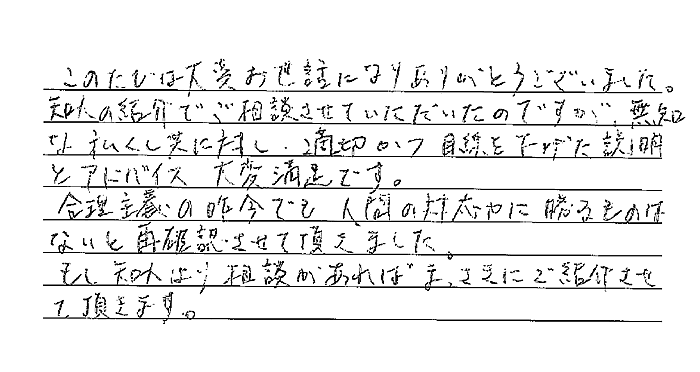 このたびは大変お世話になりありがとうございました。
知人の紹介でご相談させていただいたのですが、無知
な私くし共に対し、適切かつ目線を下げた説明
とアドバイス 大変満足です。
合理主義の昨今でも人間の対応力に勝るものは
ないと再確認させて頂きました。
もし知人より相談があればま、さきにご紹介させ
て頂きます。